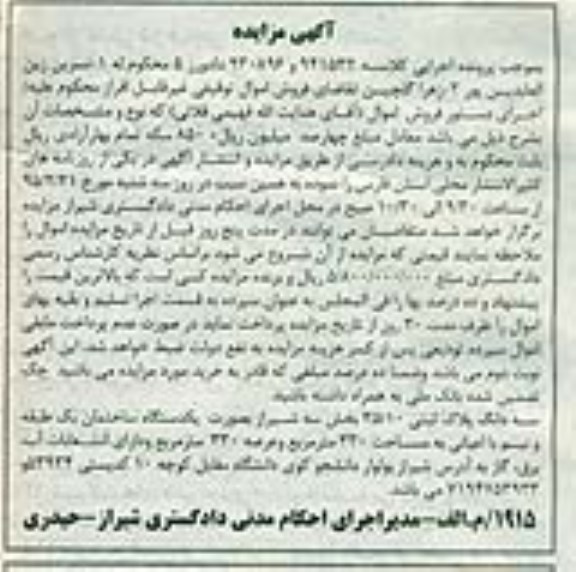 آگهی مزایده
بموجب پرونده اجرایی کلاسه ۹۴۱۵۳۳ و ۹۳۰۸۹۶ دادورز ۵ محکوم‌له ۱-نسرین زین
العابدین پور ۲-زهرا گلچین تقاضای فروش اموال توقیفی غیرقابل افراز محکوم علیه/
اجرای دستور فروش اموال (آقای هدایت اله فهیمی قلاتی) که نوع و مشخصات آن
بشرح ذیل می باشد معادل مبلغ چهارصد میلیون ریال+ ۸۵۰ سکه تمام بهارآزادی ریال
بابت محکوم به و هزینه دادرسی از طریق مزایده و انتشار آگهی در یکی از روزنامه های
کثیرالانتشار محلی استان فارس را نموده به همین سبب در روز سه شنبه مورخ ۹۵/۲/۲۱
از ساعت ۹/۳۰ الی ۱۰/۳۰ صبح در محل اجرای احکام مدنی دادگستری شیراز مزایده
برگزار خواهد شد متقاضیان می توانند در مدت پنج روز قبل از تاریخ مزایده اموال را
ملاحظه نمایند قیمتی که مزایده از آن شروع می شود براساس نظریه کارشناس رسمی
دادگستری مبلغ ۵/۸۰۰/۰۰۰/۰۰۰ ریال و برنده مزایده کسی است که بالاترین قیمت را
پیشنهاد و ده درصد بها را فی المجلس به عنوان سپرده به قسمت اجرا تسلیم و بقیه بهای
اموال را ظرف مدت ۳۰ روز از تاریخ مزایده پرداخت نماید در صورت عدم پرداخت مابقی
اموال سپرده تودیعی پس از کسر هزینه مزایده به نفع دولت ضبط خواهد شد. این آگهی
نوبت دوم می باشد وضمنا ده درصد مبلغی که قادر به خرید مورد مزایده می باشید چک
تضمین شده بانک ملی به همراه داشته باشید
سه دانگ پلاک ثبتی بخش سه شیراز بصورت یکدستگاه ساختمان یک طبقه
و نیم با اعیانی به مساحت ۲۳۰ مترمربع وعرصه ۳۳۰ مترمربع ودارای انشعابات آب
برق، گاز به آدرس شیراز بولوار دانشجو کوی دانشگاه مقابل کوچه ۱۰ کدپستی
۷۱۹۴۷۵۳۹۳۳ می باشد.
۱۹۱۵/م.الف-مدیراجرای احکام مدنی دادگستری شیراز-حیدری